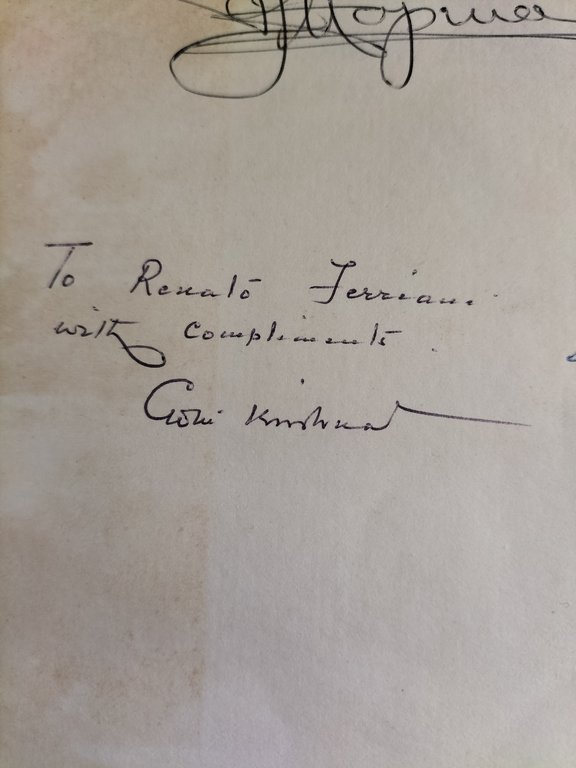 To Renato Ferriani
with compliments.
Gopi Krishna